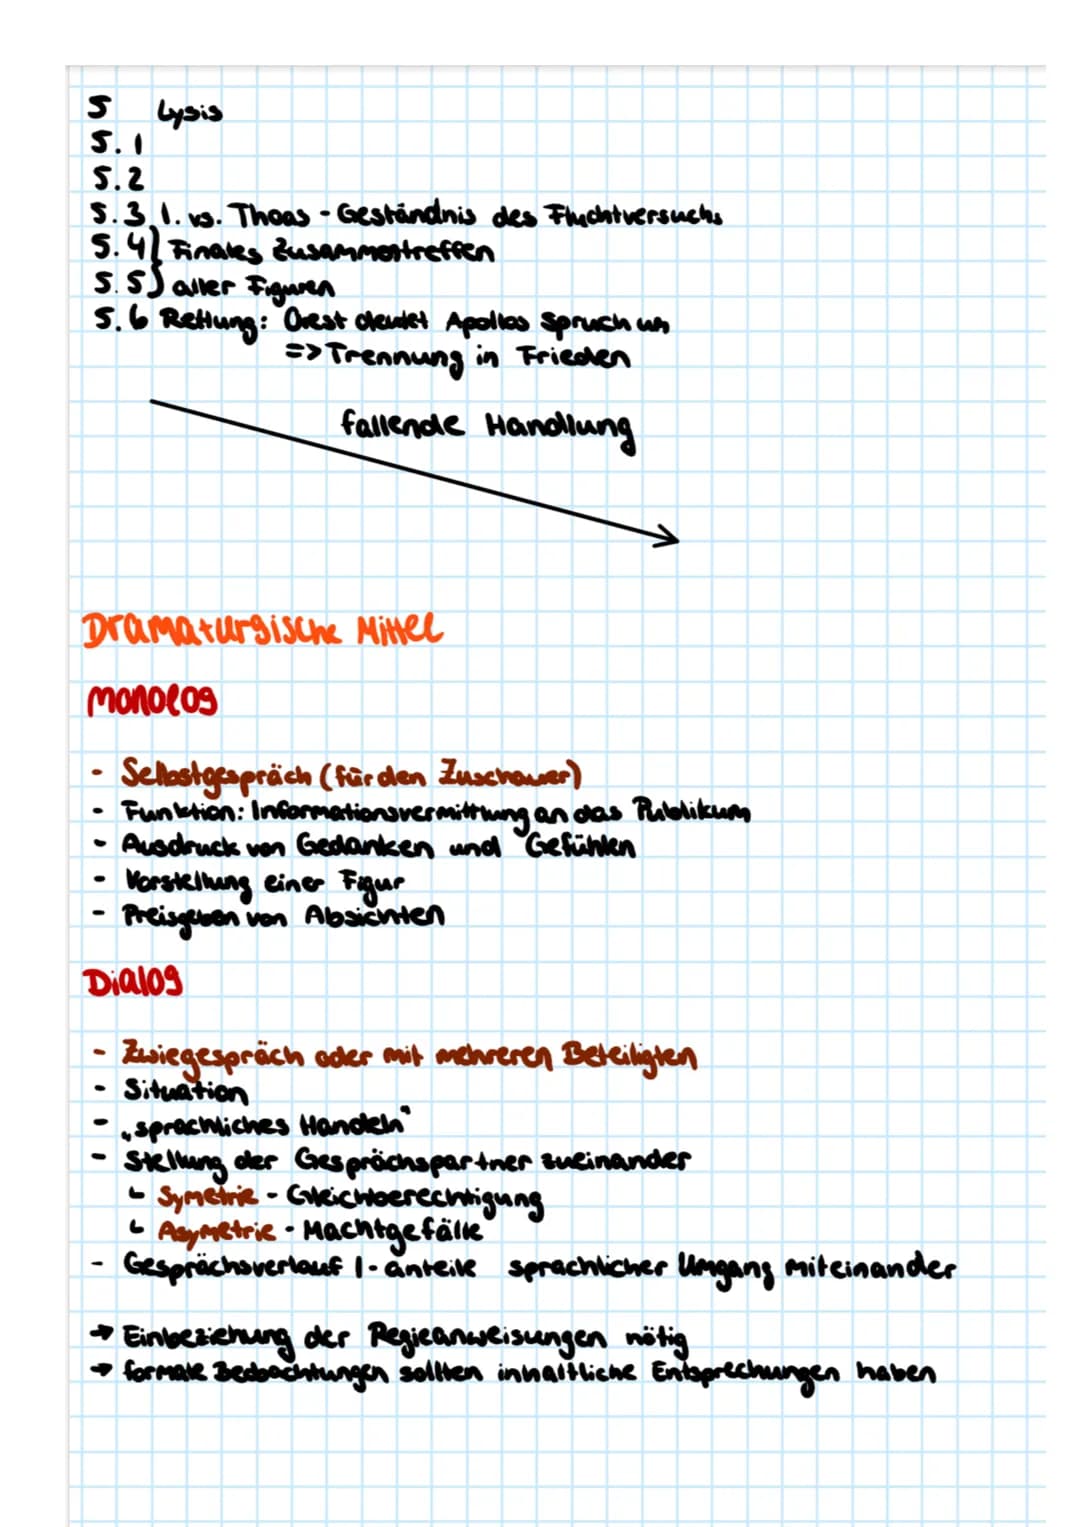 5 Lysis
5.1
5.2
5.3 I. vs. Thoas - Geständnis des Fluchtversuchs
5.4 } Finales Zusammentreffen
5.5 } aller Figuren
5.6 Rettung: Orest deutet Apollos Spruch um
=> Trennung in Frieden
fallende Handlung
Dramaturgische Mittel
Monolog
- Selbstgespräch (für den Zuschauer)
- Funktion: Informationsvermittlung an das Publikum
- Ausdruck von Gedanken und Gefühlen
- Vorstellung einer Figur
- Preisgeben von Absichten
Dialog
- Zwiegespräch oder mit mehreren Beteiligten
- Situation
- „sprachliches Handeln"
- Stellung der Gesprächspartner zueinander
↳ Symetrie - Gleichberechtigung
↳ Asymetrie - Machtgefälle
- Gesprächsverlauf / - anteile sprachlicher Umgang miteinander
→ Einbeziehung der Regieanweisungen nötig
→ formale Beobachtungen sollten inhaltliche Entsprechungen haben